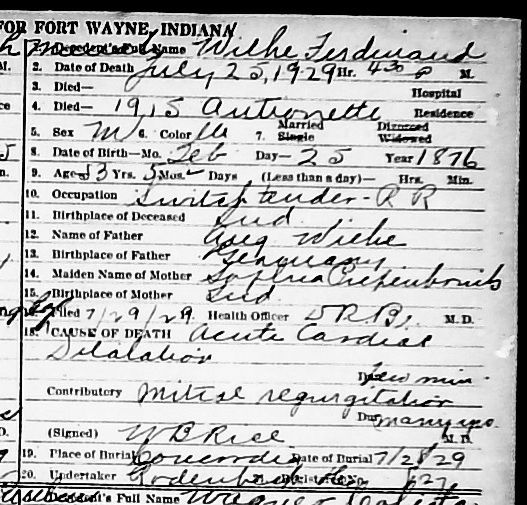 FOR FORT WAYNE, INDIANA
Decedent's Full Name Wilke Ferdinand
2. Date of Death July 25, 1929 Hr. 4 30 P M.
3. Died— Hospital
4. Died— 1915 Antionette Residence
5. Sex M 6. Color W 7. Married Single Divorced Widowed
8. Date of Birth—Mo. Feb Day— 25 Year 1876
9. Age 53 Yrs. 5 Mos. — Days (Less than a day)— Hrs. Min.
10. Occupation Switch tender - RR
11. Birthplace of Deceased Ind
12. Name of Father Aug Wilke
13. Birthplace of Father Germany
14. Maiden Name of Mother Sophia
15. Birthplace of Mother Ind
Filed 7/29/29 Health Officer M. D.
18. CAUSE OF DEATH Acute Cardiac
Dilatation
few min.
Contributory Mitral regurgitation
Dur many yrs.
(Signed) W B Rice M. D.
19. Place of Burial Concordia Date of Burial 7/28/29
20. Undertaker
Decedent's Full Name